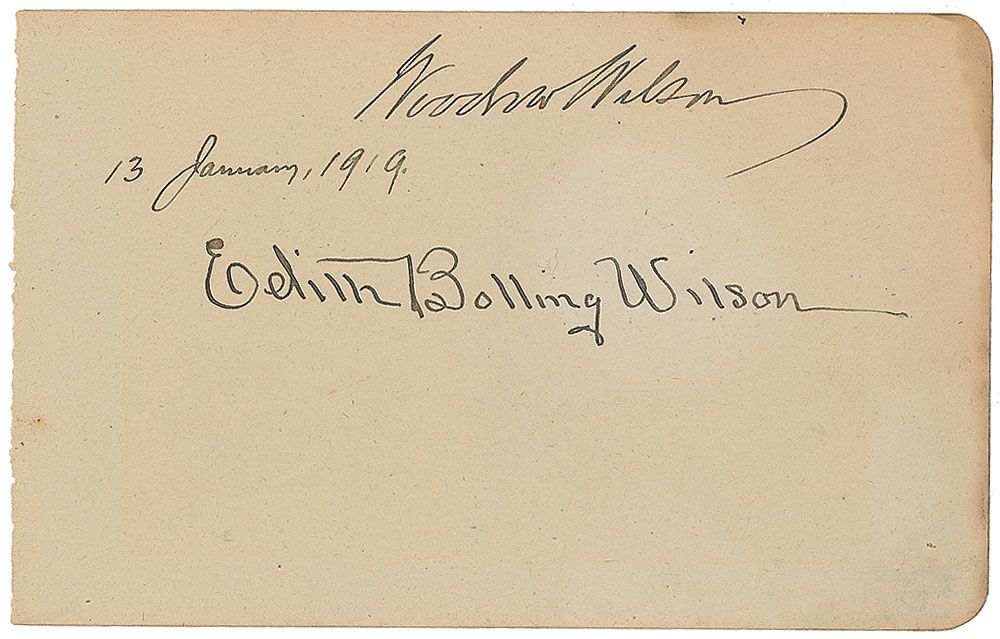 Woodrow Wilson
13 January, 1919.
Edith Bolling Wilson